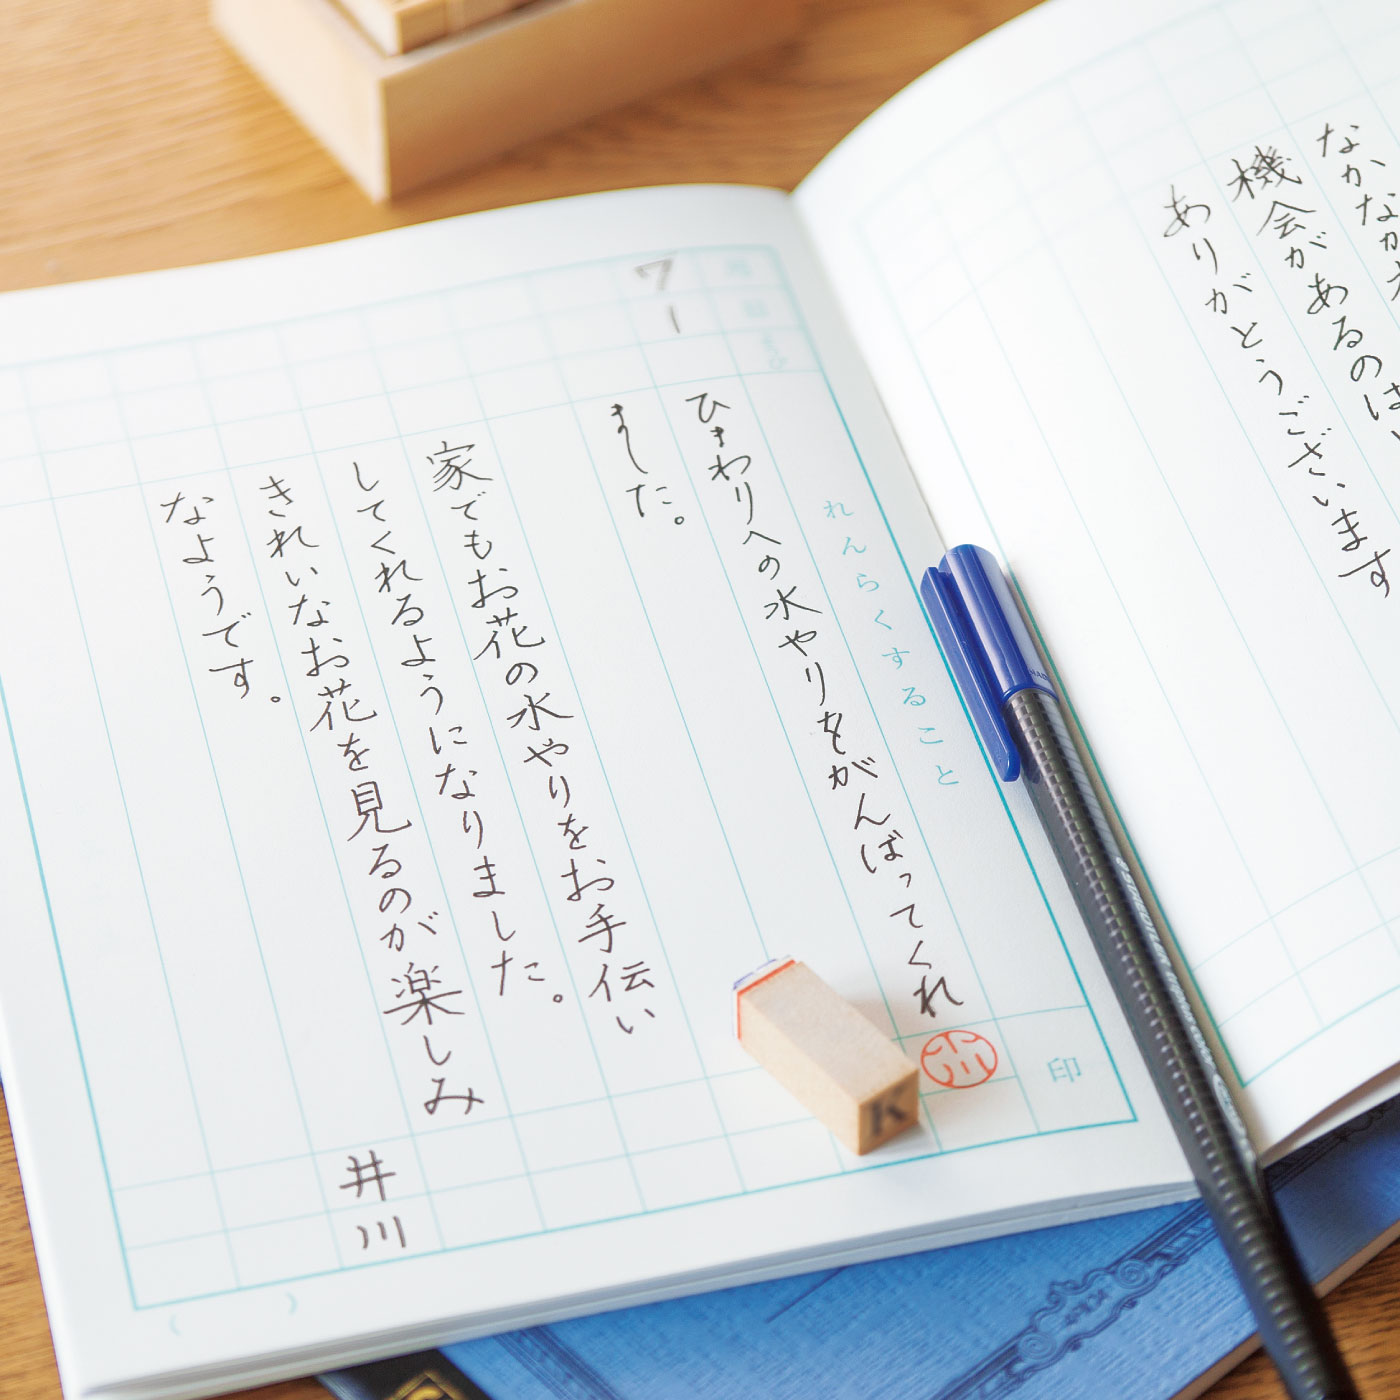 なかなか
機会があるのは、
ありがとうございます
れんらくすること
印
7
1
ひまわりへの水やりをがんばってくれ
ました。
家でもお花の水やりをお手伝い
してくれるようになりました。
きれいなお花を見るのが楽しみ
なようです。
井川
K